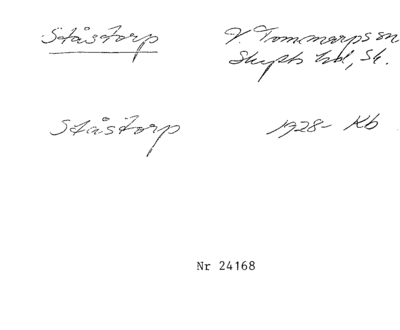 Ståstorp
V. Tommarps sn
Skytts hd, Sk.
Ståstorp
1928- Kb
Nr 24168